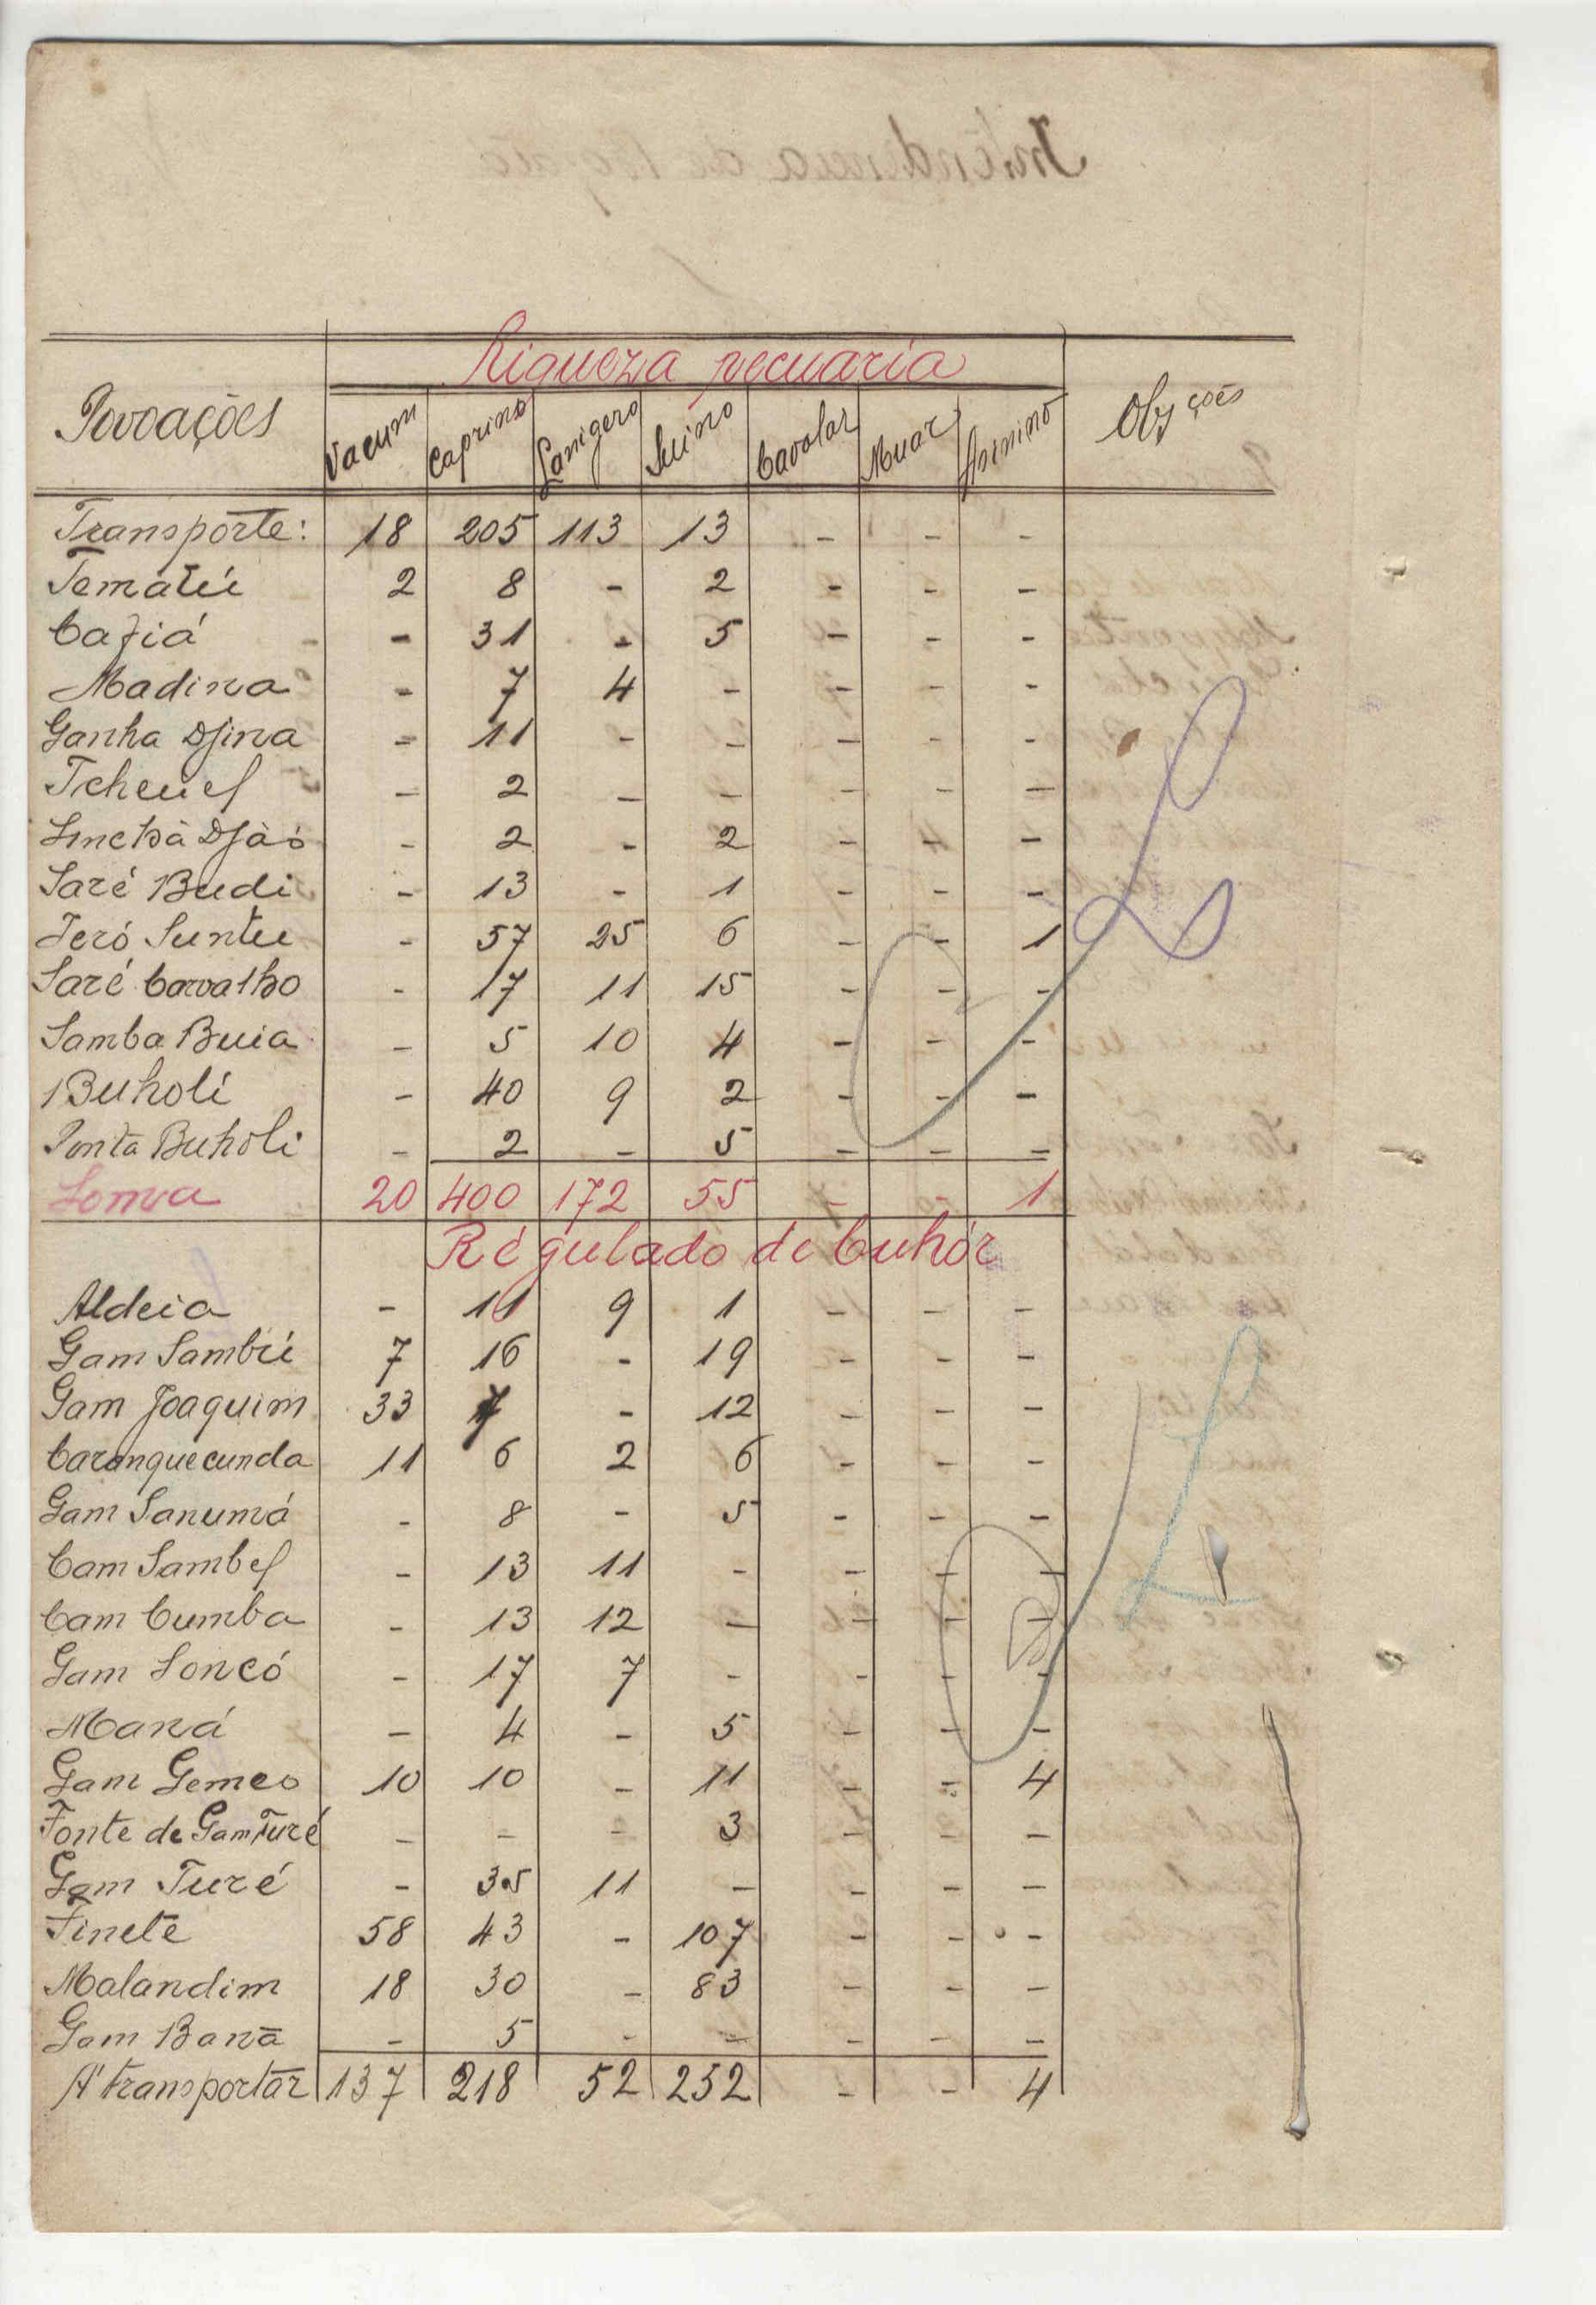 Riqueza pecuaria
Povoações Vacum Caprino Lanigero Suino Cavalar Muar Asinino Obsções
Transporte: 18 205 113 13 - - -
Tematú 2 8 - 2 - - -
Cafiá - 31 - 5 - - -
Madina - 7 4 - - - -
Ganha Djina - 11 - - - - -
Tcheuel - 2 - - - - -
Sinchà Djàó - 2 - 2 - - -
Saré Budi - 13 - 1 - - -
Jeró Suntu - 57 25 6 - - 1
Saré Carvalho - 17 11 15 - - -
Samba Buia - 5 10 4 - - -
Buholi - 40 9 2 - - -
Ponta Buholi - 2 - 5 - - -
Soma 20 400 172 55 - - 1
Régulado de Cuhór
Aldeia - 11 9 1 - - -
Gam Sambú 7 16 - 19 - - -
Gam Joaquim 33 7 - 12 - - -
Caranquecunda 11 6 2 6 - - -
Gam Sanumá - 8 - 5 - - -
Cam Sambel - 13 11 - - - -
Cam Cumba - 13 12 - - - -
Gam Soncó - 17 7 - - - -
Maná - 4 - 5 - - -
Gam Gemeo 10 10 - 11 - - 4
Fonte de Gam Turé - - - 3 - - -
Gam Turé - 35 11 - - - -
Finete 58 43 - 107 - - -
Malandim 18 30 - 83 - - -
Gam Banã - 5 - - - - -
A transportar 137 218 52 252 - - 4